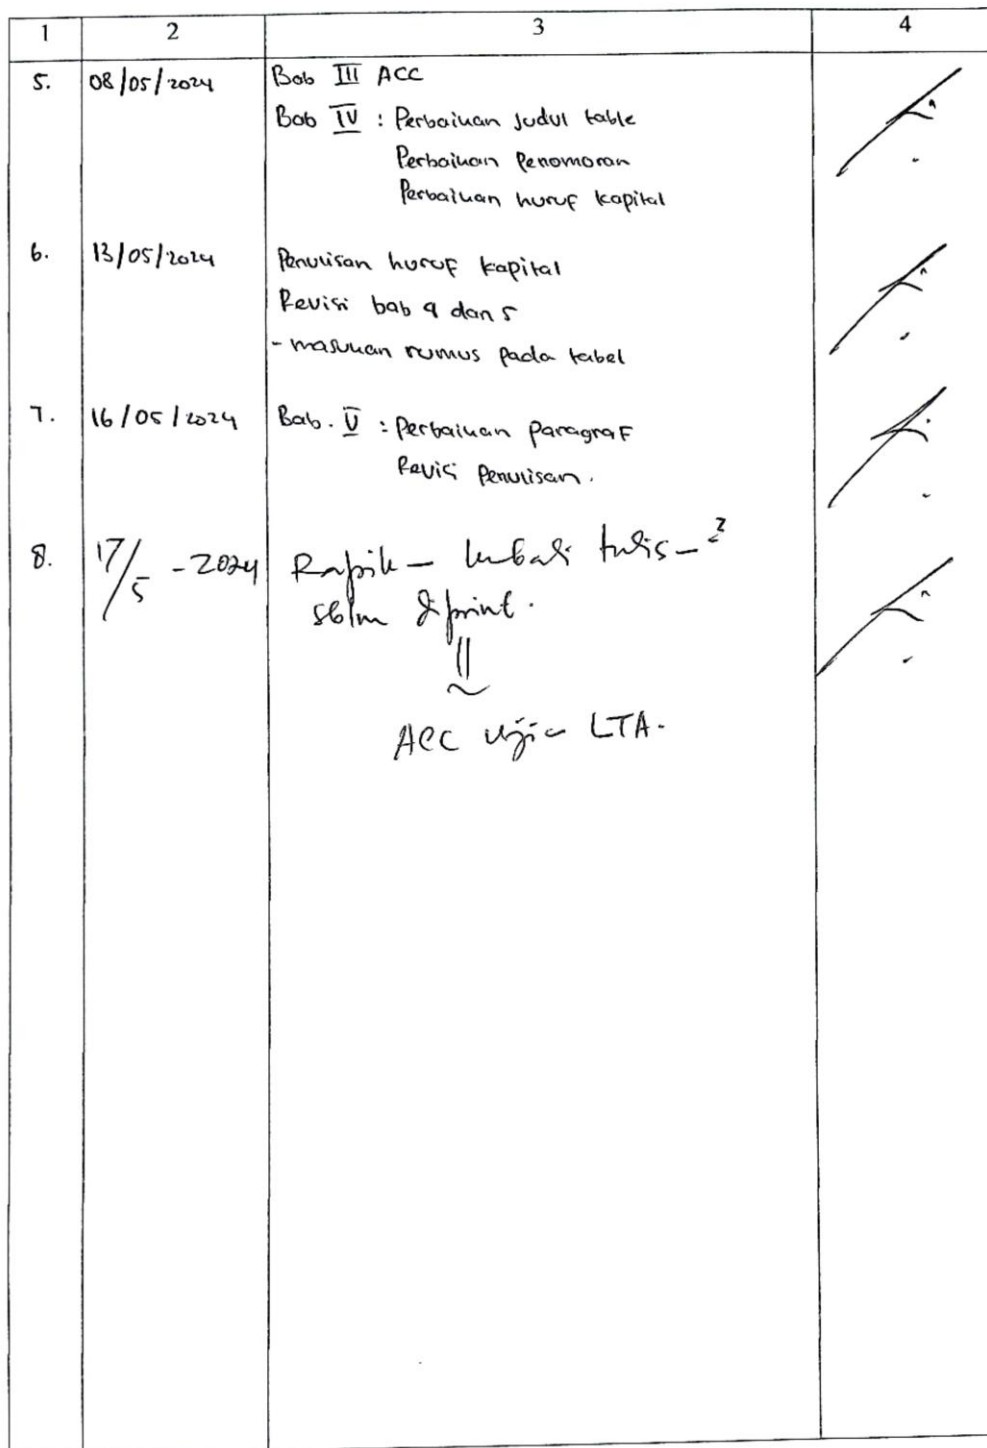 1 2 3 4
5. 08/05/2024 Bab III ACC
Bab IV : Perbaikan Judul table
Perbaikan Penomoran
Perbaikan huruf kapital
6. 13/05/2024 Penulisan huruf kapital
Revisi bab 4 dan 5
- masukan rumus pada tabel
7. 16/05/2024 Bab. V : Perbaikan Paragraf
Revisi Penulisan.
8. 17/5 - 2024 Rapik- kembali tulis-2
sblm diprint.
ACC ujian LTA.